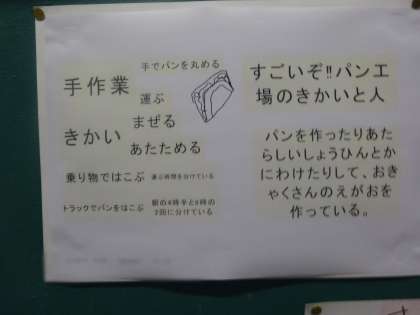 手でパンを丸める
手作業
運ぶ
まぜる
きかい
あたためる
乗り物ではこぶ
運ぶ時間を分けている
トラックでパンをはこぶ
朝の4時半と8時の
2回に分けている
すごいぞ!!パン工
場のきかいと人
パンを作ったりあた
らしいしょうひんとか
にわけたりして、おき
ゃくさんのえがおを
作っている。